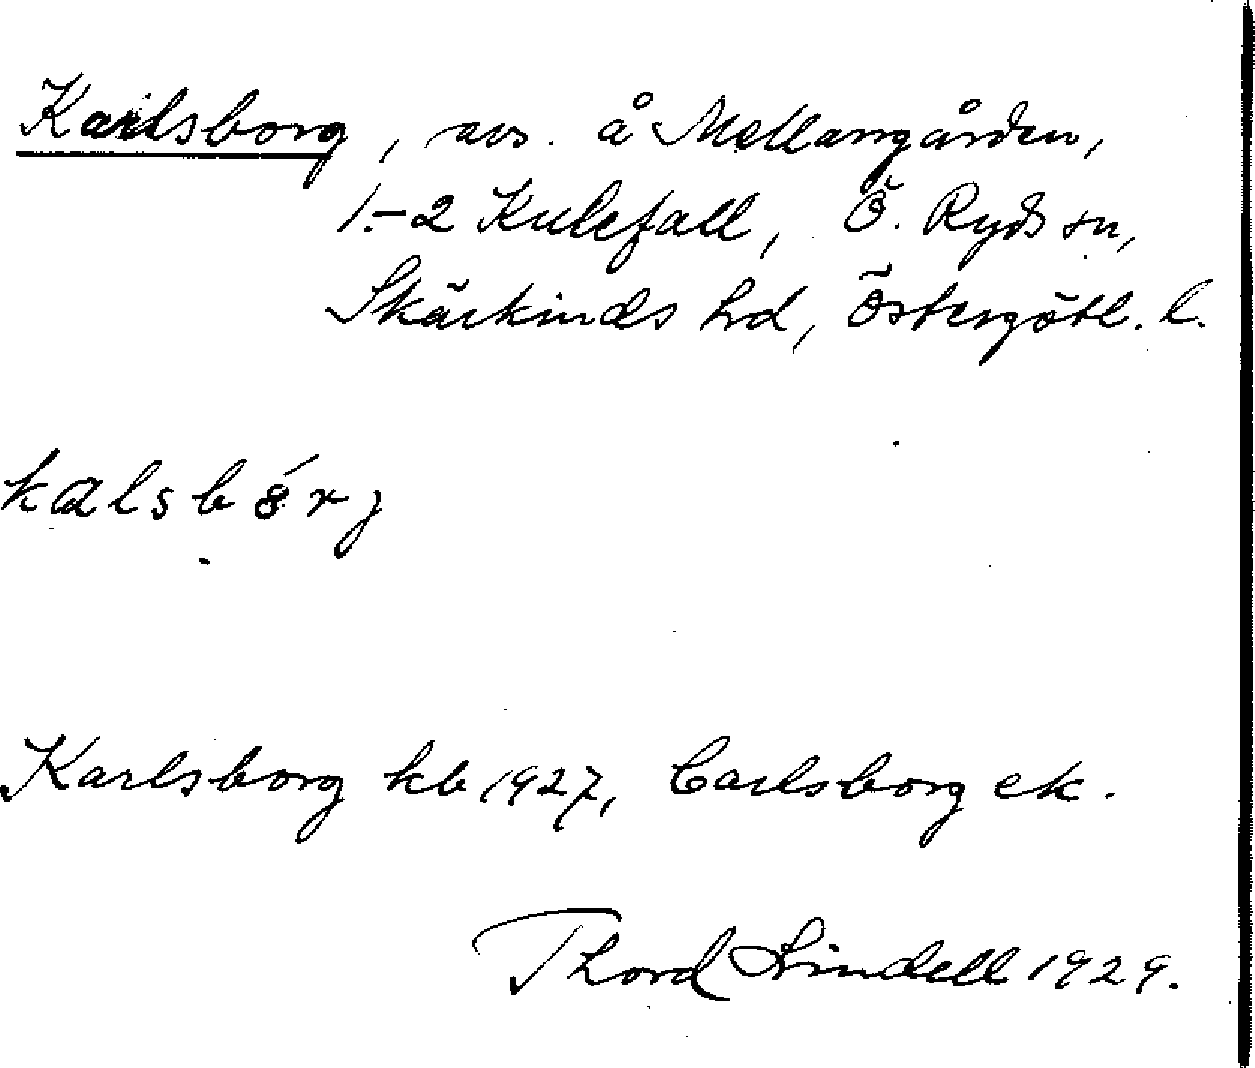 Karlsborg, avs. å Mellangården,
1.-2 Kulefall, Ö. Ryds sn,
Skärkinds hd, Östergötl. l.
kalsbórj
Karlsborg kb 1927, Carlsborg ek.
Thord Lindell 1929.